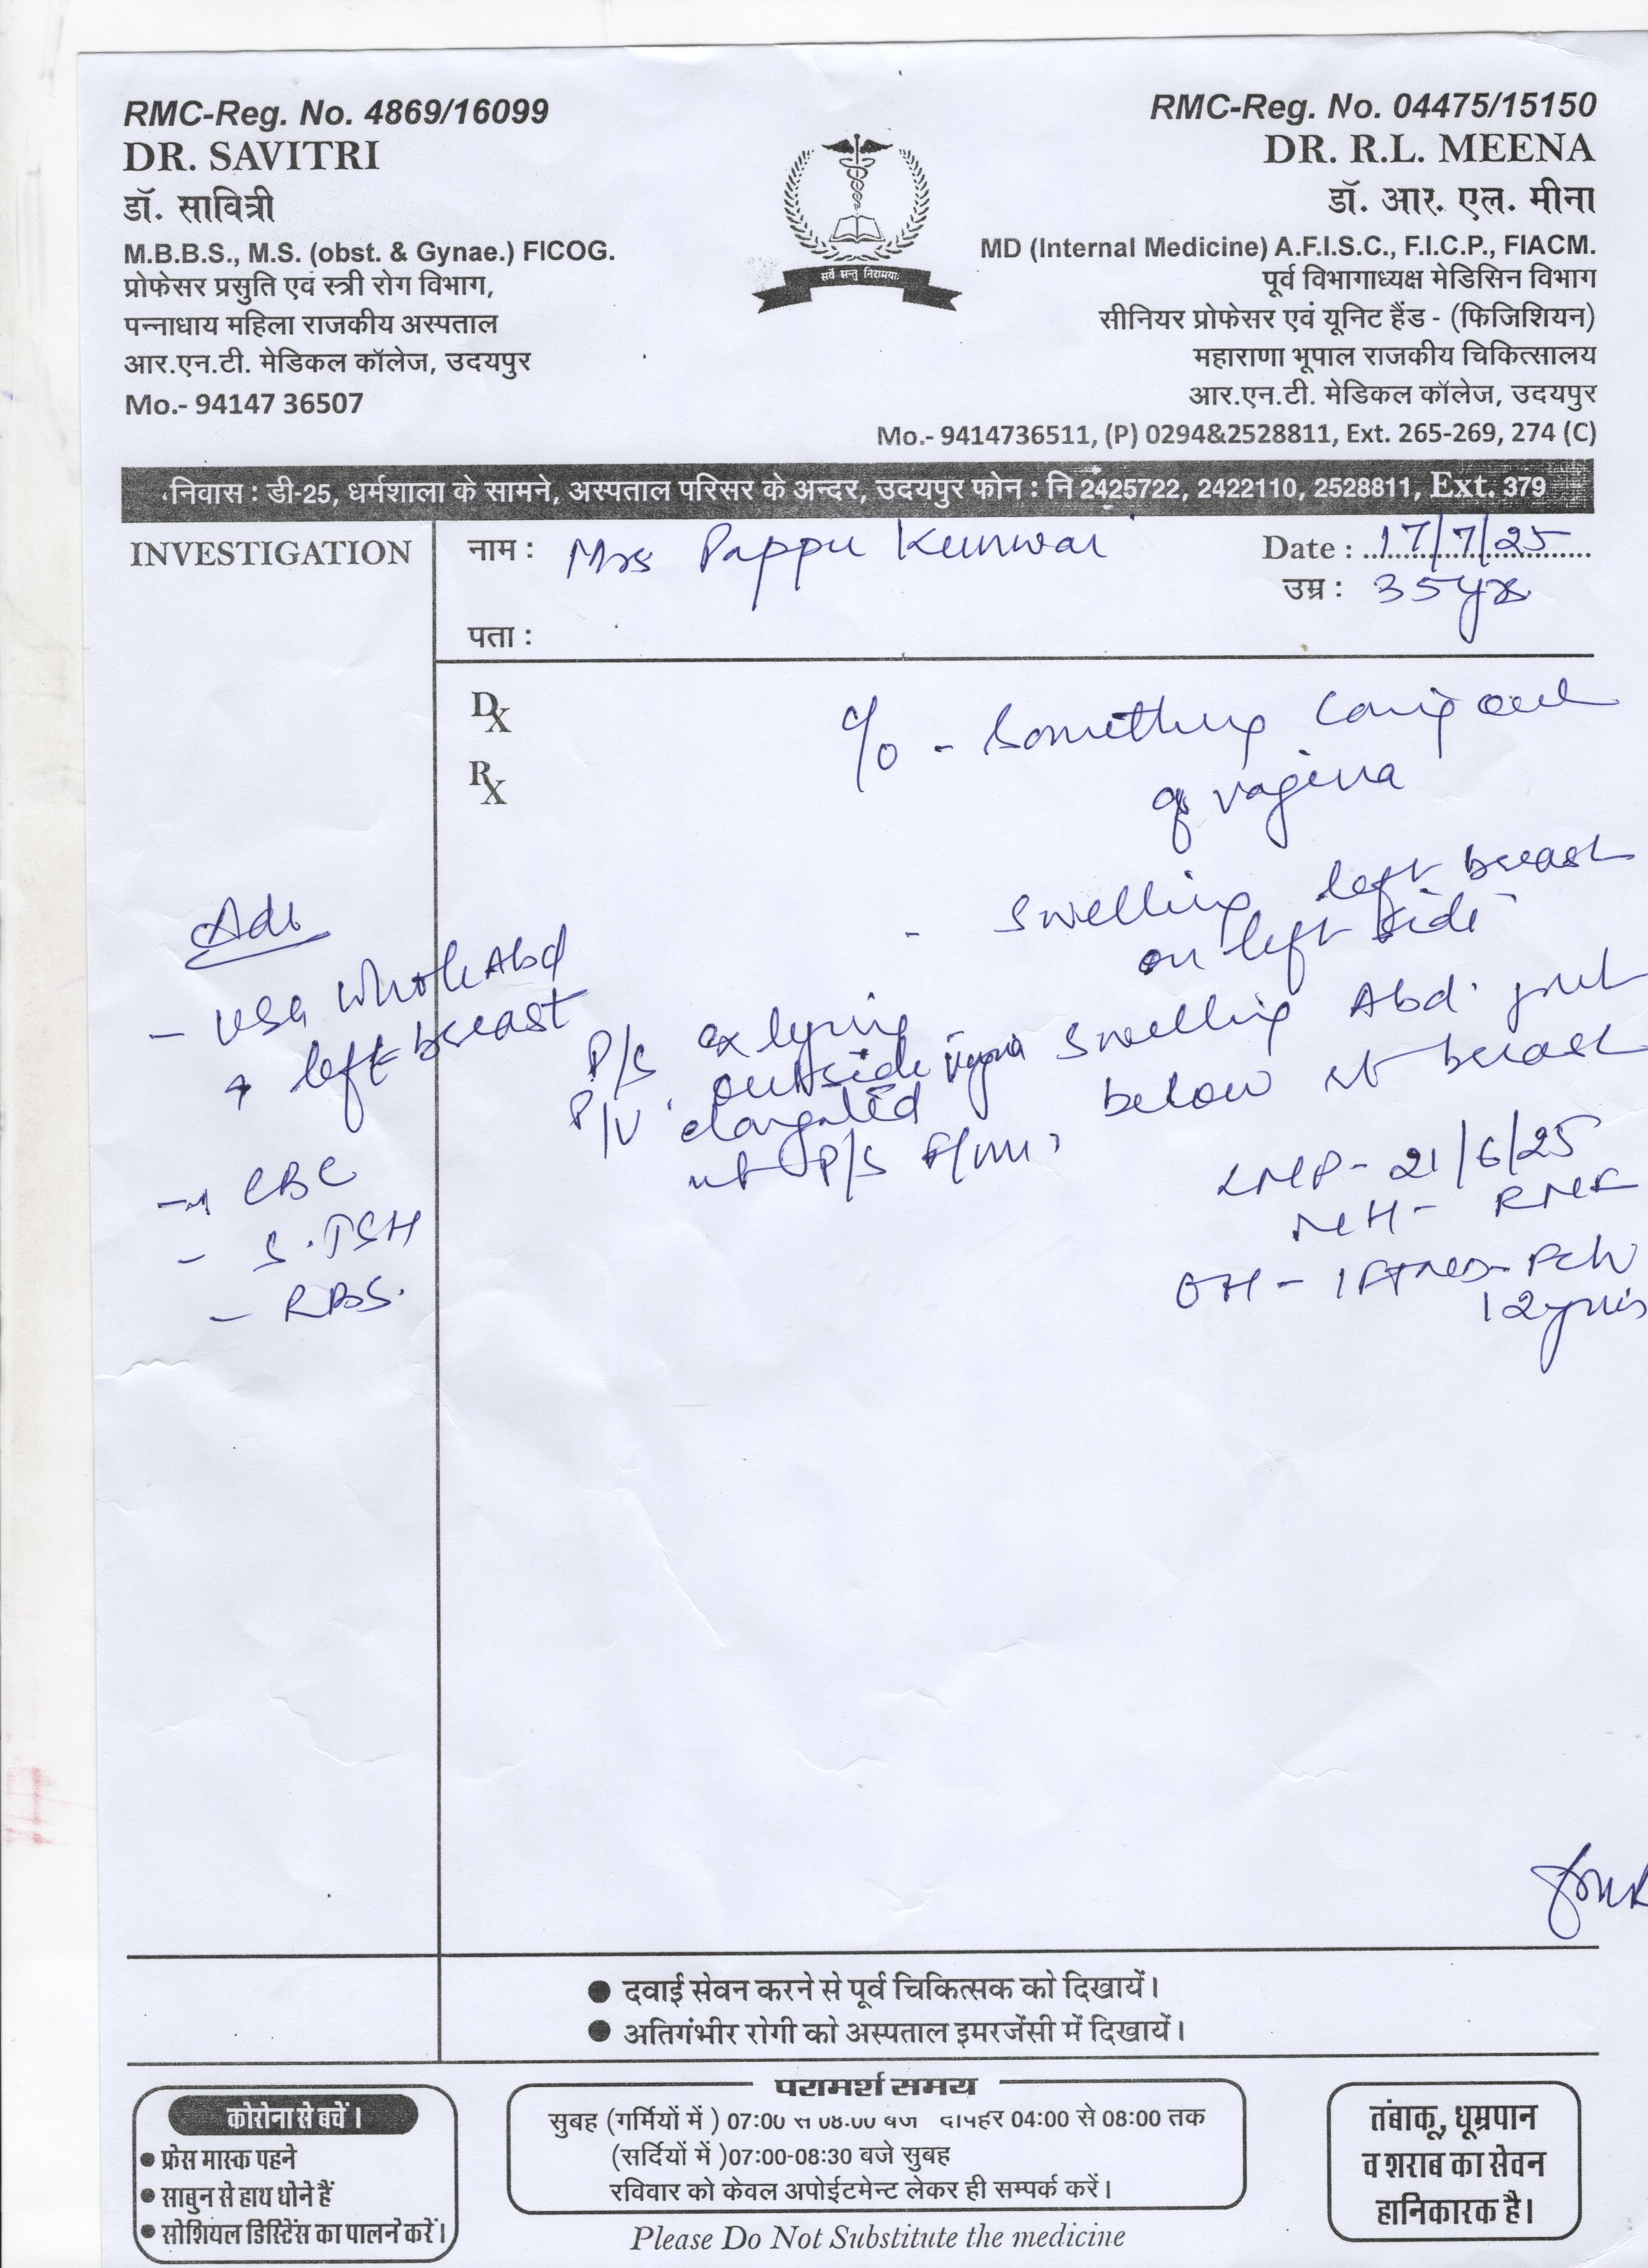 RMC-Reg. No. 4869/16099
DR. SAVITRI
डॉ. सावित्री
M.B.B.S., M.S. (obst. & Gynae.) FICOG.
प्रोफेसर प्रसुति एवं स्त्री रोग विभाग,
पन्नाधाय महिला राजकीय अस्पताल
आर.एन.टी. मेडिकल कॉलेज, उदयपुर
Mo.- 94147 36507
सर्वे सन्तु निरामयाः
RMC-Reg. No. 04475/15150
DR. R.L. MEENA
डॉ. आर. एल. मीना
MD (Internal Medicine) A.F.I.S.C., F.I.C.P., FIACM.
पूर्व विभागाध्यक्ष मेडिसिन विभाग
सीनियर प्रोफेसर एवं यूनिट हैंड - (फिजिशियन)
महाराणा भूपाल राजकीय चिकित्सालय
आर.एन.टी. मेडिकल कॉलेज, उदयपुर
Mo.- 9414736511, (P) 0294&2528811, Ext. 265-269, 274 (C)
निवास : डी-25, धर्मशाला के सामने, अस्पताल परिसर के अन्दर, उदयपुर फोन : नि 2425722, 2422110, 2528811, Ext. 379
INVESTIGATION
नाम : Mrs Pappu Kunwar
Date : 17/7/25
उम्र : 35yrs
पता :
Dx
Rx
c/o - Something coming out
of vagina
- Swelling left breast
on left side
- Swelling Abd. just
below rt breast
LMP - 21/6/25
MH - RMF
OH - 1
12yrs
P/S cx lying
outside vagina
P/V elongated
ut P/S
Adv
- USG Whole Abd
+ left breast
- CBC
- S.TSH
- RBS.
● दवाई सेवन करने से पूर्व चिकित्सक को दिखायें।
● अतिगंभीर रोगी को अस्पताल इमरजेंसी में दिखायें।
कोरोना से बचें।
● फ्रेस मास्क पहने
● साबुन से हाथ धोने हैं
● सोशियल डिस्टिेंस का पालने करें।
परामर्श समय
सुबह (गर्मियों में ) 07:00 से 08:00 बजे दोपहर 04:00 से 08:00 तक
(सर्दियों में )07:00-08:30 बजे सुबह
रविवार को केवल अपोईटमेन्ट लेकर ही सम्पर्क करें।
Please Do Not Substitute the medicine
तंबाकू, धूम्रपान
व शराब का सेवन
हानिकारक है।